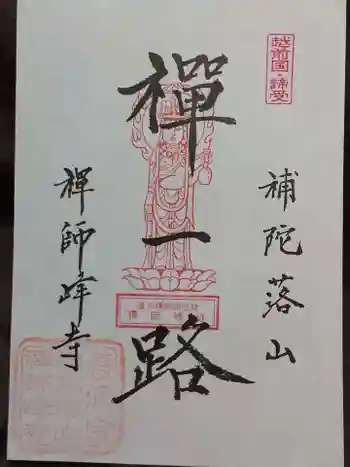 越前国・諦受
補陀落山
禪一路
禅師峰寺